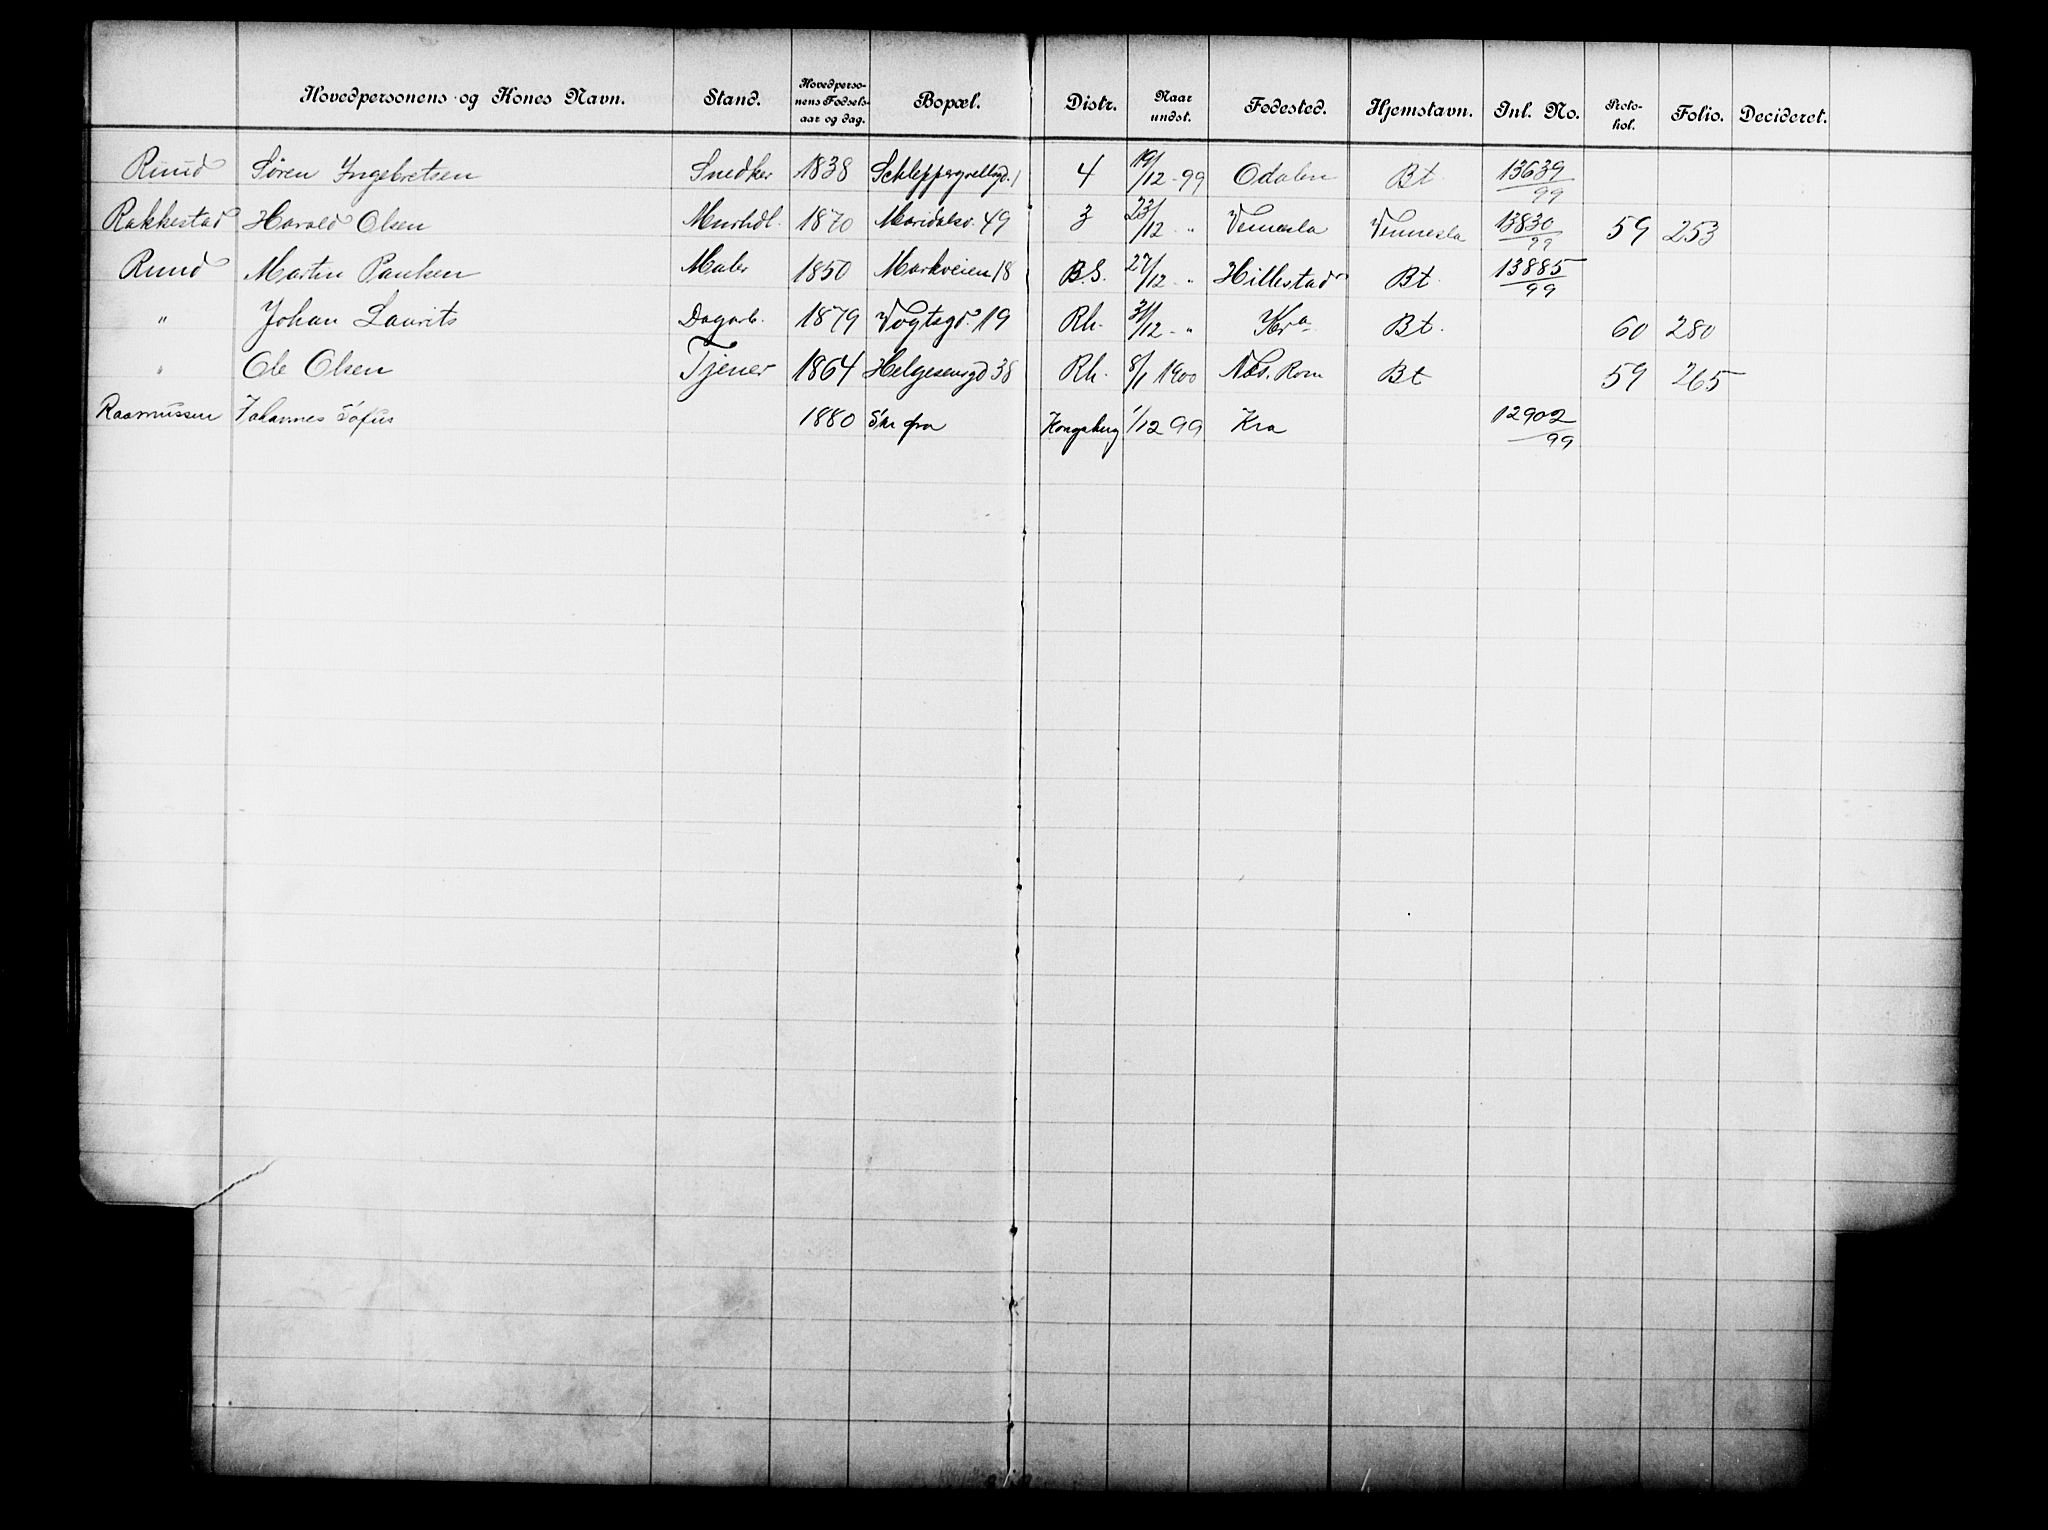 Hovedpersonens og Kones Navn. Stand. Hovedpersonens Fødselsaar og dag. Bopæl. Distr. Naar undst. Fødested. Hjemstavn. Inl. No. Protokol. Folio. Decideret.
Ruud Søren Ingebretsen Snedker 1838 Schleppegrellsgd. 1 4 19/12 - 99 Odalen Bt. 13639/99
Rakkestad Harald Olsen Murhdl. 1870 Maridalsv. 49 3 23/12 - " Vennesla Vennesla 13830/99 59 253
Ruud Martin Paulsen Maler 1850 Markveien 18 B.S. 27/12 - " Hillestad Bt. 13885/99
" Johan Laurits Dagarb. 1879 Vogtsgd. 19 Rh. 31/12 - " Kra Bt. 60 280
" Ole Olsen Tjener 1864 Helgesensgd 38 Rh. 8/1 1900 Nes. Rom Bt 59 265
Rasmussen Johannes Sofus 1880 Skr fra Kongsberg 1/12 99 Kra 12902/99